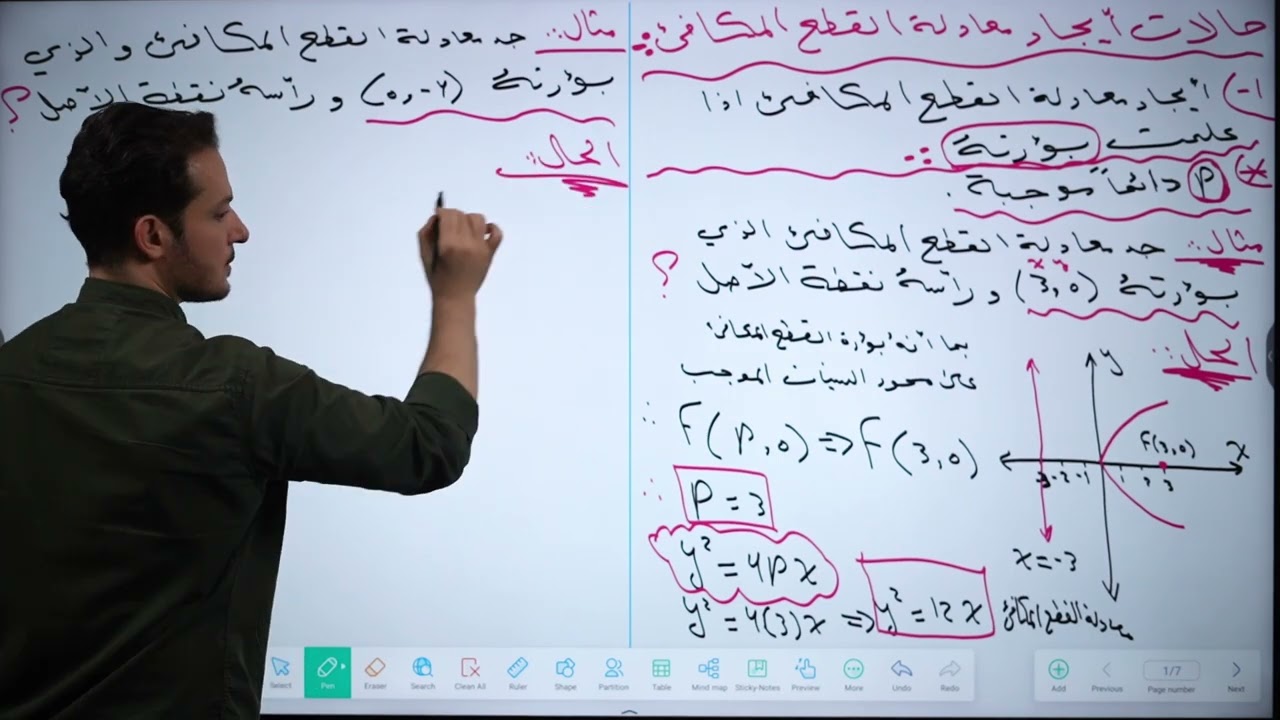 حالات أيجاد معادلة القطع المكافئ :-
١-) أيجاد معادلة القطع المكافئ اذا
علمت بؤرتهُ :-
* P دائماً موجبة .
مثال :- جد معادلة القطع المكافئ الذي
بؤرتهُ (3,0) و رأسهُ نقطة الأصل ؟
x y
الحل :-
بما أنهُ بؤرة القطع المكافئ
على محور السينات الموجب
∴ F(P,0) => F(3,0)
∴ P = 3
y² = 4Px
y² = 4(3)x => y² = 12x
معادلة القطع المكافئ
y
F(3,0)
x
-3 -2 -1 1 2 3
x = -3
مثال :- جد معادلة القطع المكافئ والذي
بؤرتهُ (0,-4) و رأسهُ نقطة الأصل ؟
الحل :-
Select
Pen
Eraser
Search
Clean All
Ruler
Shape
Partition
Table
Mind map
Sticky-Notes
Preview
More
Undo
Redo
Add
Previous
1/7
Page number
Next